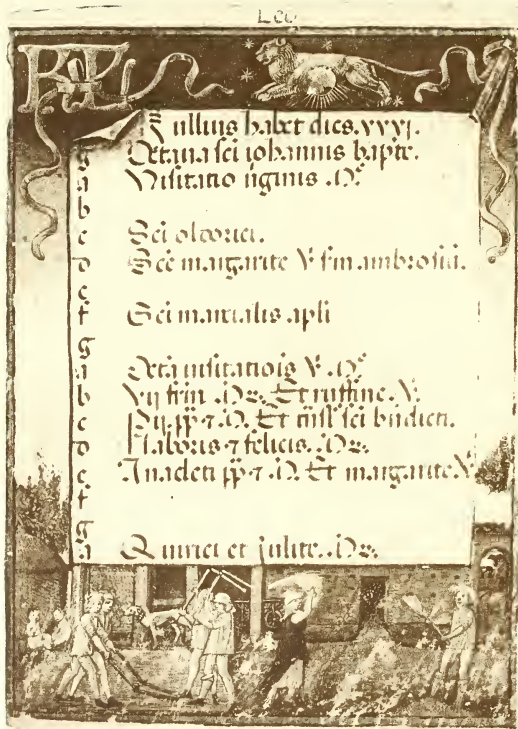 Leo
Iullius habet dies. xxxj.
g Octaua sci iohannis bapte.
a Visitatio uginis .D.
b
c Sci olderici.
d Sce margarite V sm ambrosiũ.
e
f Sci martialis apli
g
a Octa uisitatiois V. D.
b Vij frm .Dr. Et ruffine .V.
c Pij. pp 7 .D. Et tñsl sci bndicti.
d Naboris 7 felicis. .Dr.
e Anacleti pp 7 .D. Et margarite V
f
g
a Quirici et Julite. .Dr.